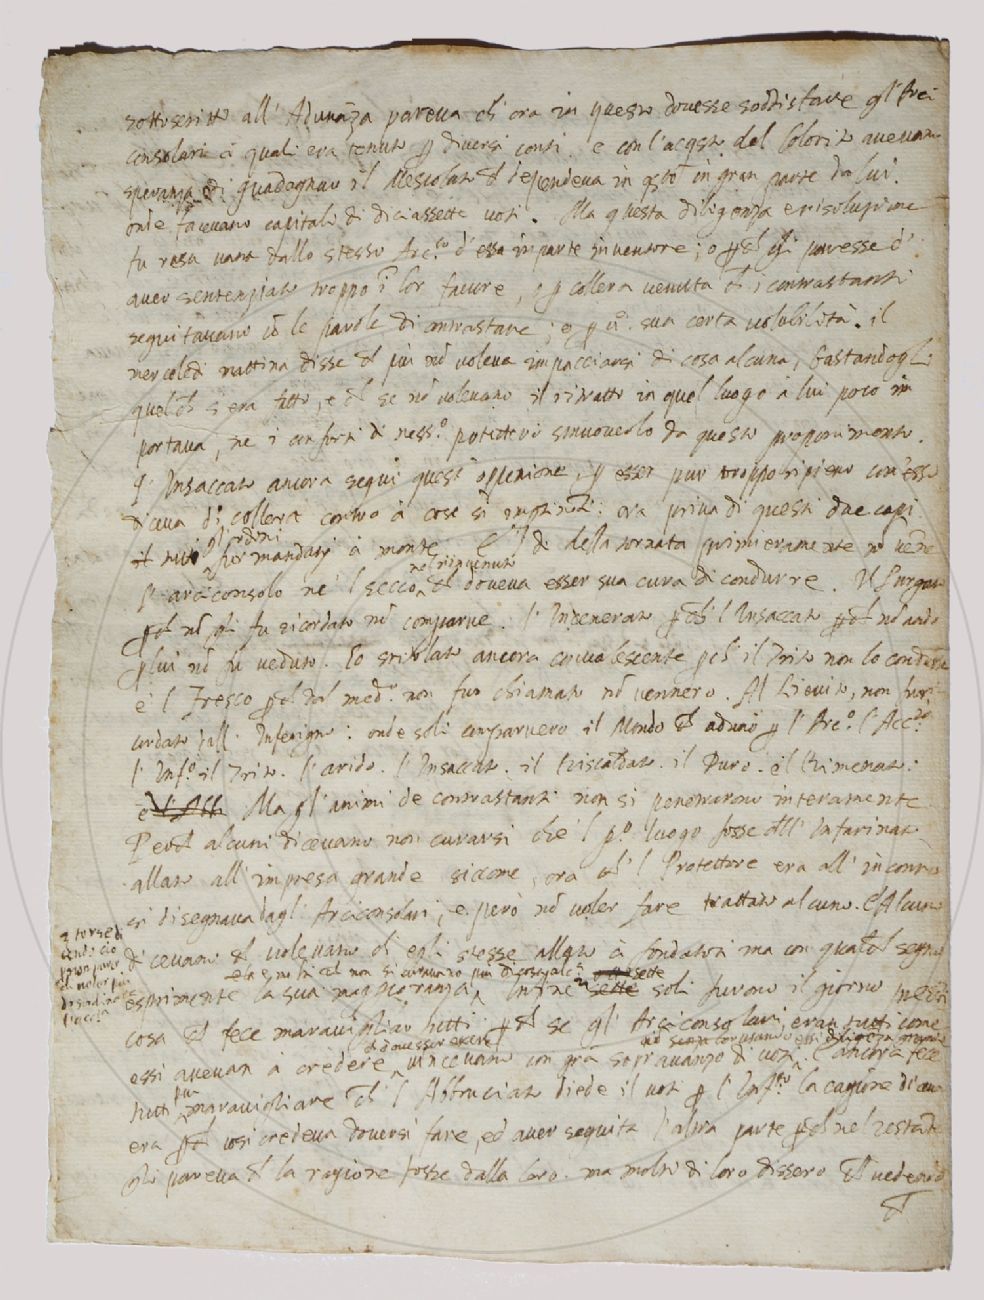 sottoscritto all' Adunāza pareva ch' ora in questo dovesse soddisfare gl' Arci
consolari à quali era tenuto ꝑ diversi conti, e con l'acqsto del Colorito avevano
speranza di guadagnar il Mescolato che dependeva in qsto in gran parte da lui.
onde facevano capitale di diciassette voti. Ma questa diligenza e risoluzione
fu resa vana dallo stesso Arc.so d'essa in parte inventore; o ꝑche gli paresse d'
aver sentenziato troppo ī lor favore, o ꝑ collera venuta che i contrastanti
seguitavano cō le parole di contrastare; e ꝑ una sua certa volubilità. il
mercoledì mattina disse che più nō voleva impacciarsi di cosa alcuna, bastandogli
quel ch' s'era fatto, e che se nō volevano il ritratto in quel luogo à lui poco im
portava, ne i conforti di ness.o poterono smuoverlo da questo proponimento.
l' Insaccato ancora seguì quest' oppenione, ꝑ esser pur troppo ripieno com' esso
diceva di collera contro à cose sì : era priva di questi due capi
gl' ordini
mandati à monte. E 'l dì della tornata primieramente nō venne
ne'l ripieno
l' arciconsolo ne 'l secco che doveva esser sua cura di condurre. Il Purgato
ꝑche nō gli fu ricordato nō comparve. l' Incenerato, ꝑche l' Insaccato nō andò
ꝑ lui nō fu veduto. Lo stritolato ancora convalescente ꝑche il Trito non lo condusse
e 'l Fresco ꝑche non fur chiamati nō vennero. Al Lievito, non fu ri
cordato dall' Inferigno: onde soli comparvero il Mondo che adunò ꝑ l' Arc.o l' Acc.so
l' Inf.o il Trito. l' arido. l' Insaccato. il Riscaldato. il Puro. e 'l Rimenato.
Ma gl' animi de contrastanti non si penetrarono interamente
Perche alcuni dicevano non curarsi che 'l p.o luogo fosse all' Infarinato
allato all' impresa grande siccome, ora ch' 'l Protettore era all' incontro
si disegnava dagl' Arciconsolari, e però nō voler fare trattato alcuno. E Alcuni
dicevano che volevano ch' egli stesse allato à fondatori ma con qualche segno
ꝑ tor sedi
non si curavano più di cosa alc.a sette
esprimente la sua maggioranza, Infine sette soli furono il giorno
cosa che fece maravigliar tutti ꝑche se gl' Arciconsolari, eran tutti come
di dover esser
essi avevan à credere vincevano con gra sopravanzo di voti. E ancora fece
pur
tutti maravigliare ch' l' Abbruciato diede il voto ꝑ l' Inf.to la cagione di cui
era ꝑche così credeva doversi fare, ed aver seguita l'altra parte ꝑche nel restante
gli pareva che la ragione fosse dalla loro. ma molti di loro dissero che vedendo
che